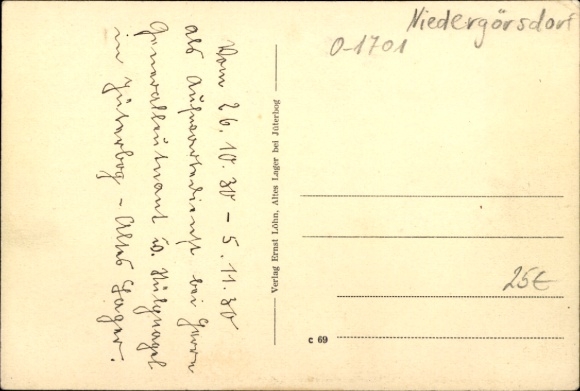 Niedergörsdorf
O-1701
Vom 26.10.30 – 5.11.30
als Aufwartedienst bei Herrn
Generalleutnant v.
in Jüterbog – Altes Lager.
Verlag Ernst Löhn, Altes Lager bei Jüterbog
25€
c 69